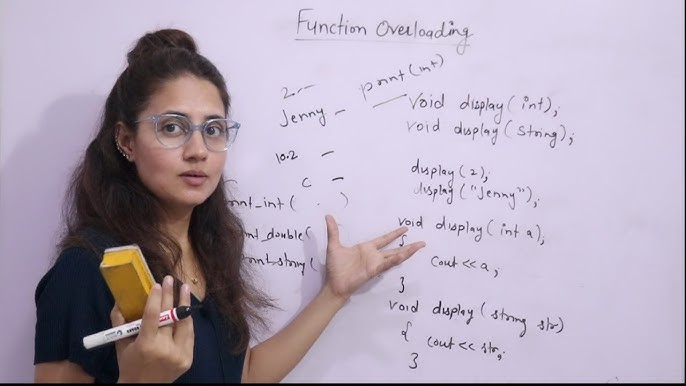 Function Overloading
2 --
Jenny -
10.2 -
c -
nt_int ( . )
nt_double (
nt_strng (
print (int)
void display ( int );
void display ( String );
display ( 2 );
display ( "Jenny" );
void display ( int a );
{
cout << a ;
}
void display ( string str )
{
cout << str ;
}